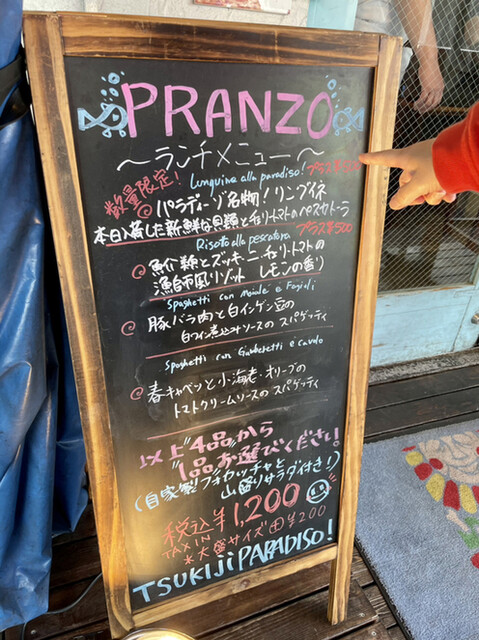 PRANZO
～ランチメニュー～
数量限定!
Linguine alla paradiso!
◎パラディーゾ名物!リングイネ
本日入荷した新鮮な貝類とチェリートマトのペスカトーラ
プラス¥500
Risotto alla pescatora
◎魚介類とズッキーニ、チェリートマトの
漁師風リゾット レモンの香り
Spaghetti con Maiale e Fagioli
◎豚バラ肉と白インゲン豆の
白ワイン煮込みソースの スパゲッティ
Spaghetti con Gamberetti e cavolo
◎春キャベツと小海老、オリーブの
トマトクリームソースの スパゲッティ
以上"4品"から
"1品"お選びください!
(自家製フォカッチャと
山盛りサラダ付き!)
税込¥1,200
TAX IN
*大盛サイズ ¥200
TSUKIJI PARADISO!